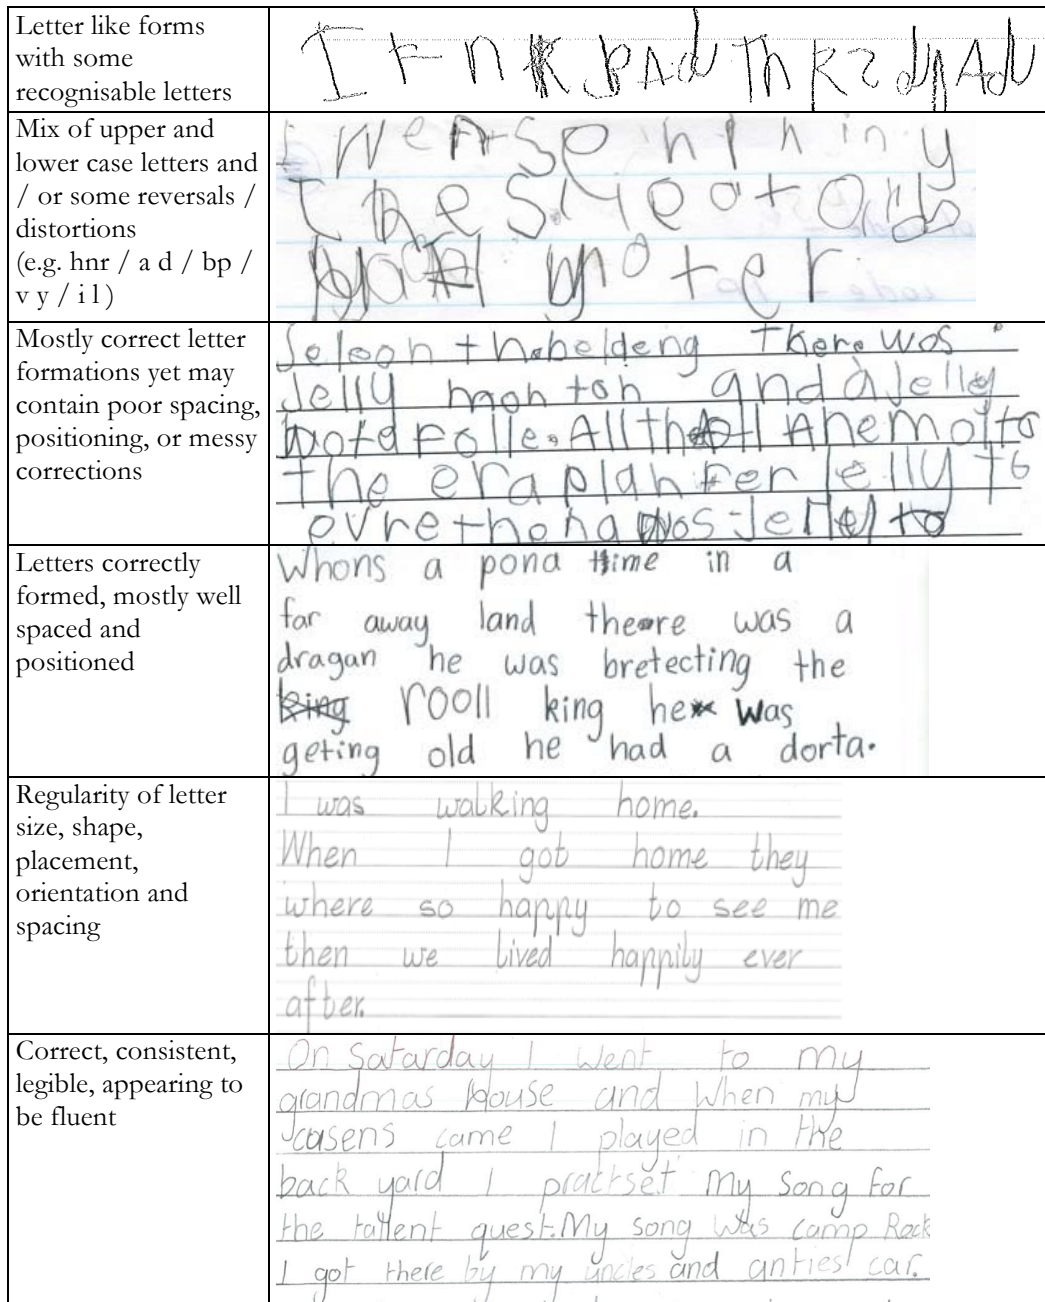 Letter like forms
with some
recognisable letters
I F n K p A d Th K 2 d p A d
Mix of upper and
lower case letters and
/ or some reversals /
distortions
(e.g. hnr / a d / bp /
v y / i l )
in y
the
moter
Mostly correct letter
formations yet may
contain poor spacing,
positioning, or messy
corrections
Seleoh thebeldeng There was
Jelly mohton and a Jelley
All the
the eraplah Fer Jelly to
evrethena was Jelley to
Letters correctly
formed, mostly well
spaced and
positioned
Whons a pond time in a
far away land theore was a
dragan he was bretecting the
king rooll king he was
geting old he had a dorta.
Regularity of letter
size, shape,
placement,
orientation and
spacing
I was walking home.
When I got home they
where so happy to see me
then we lived happily ever
after.
Correct, consistent,
legible, appearing to
be fluent
On Satarday I went to my
grandmas House and When my
casens came I played in the
back yard I practset my song for
the tallent quest. My song Was camp Rock
I got there by my uncles and anties' car.